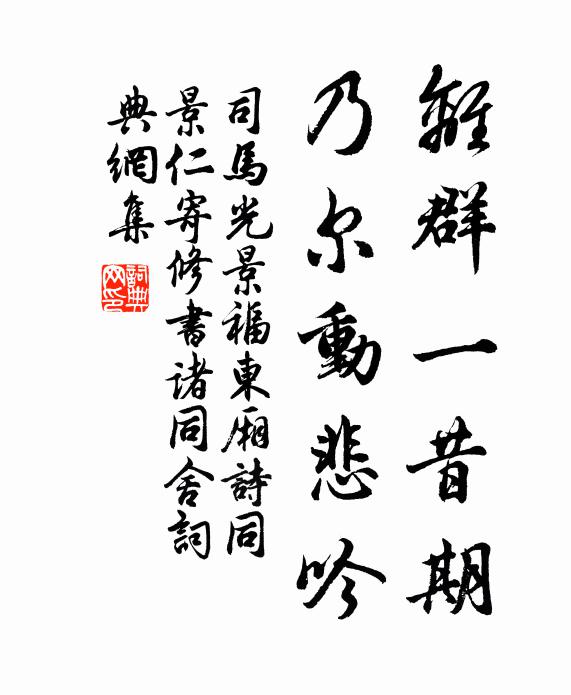 離群一昔期
乃尔動悲吟
司馬光景福東廂詩同
景仁寄修書诸同舍詞
典網集
詞典网印